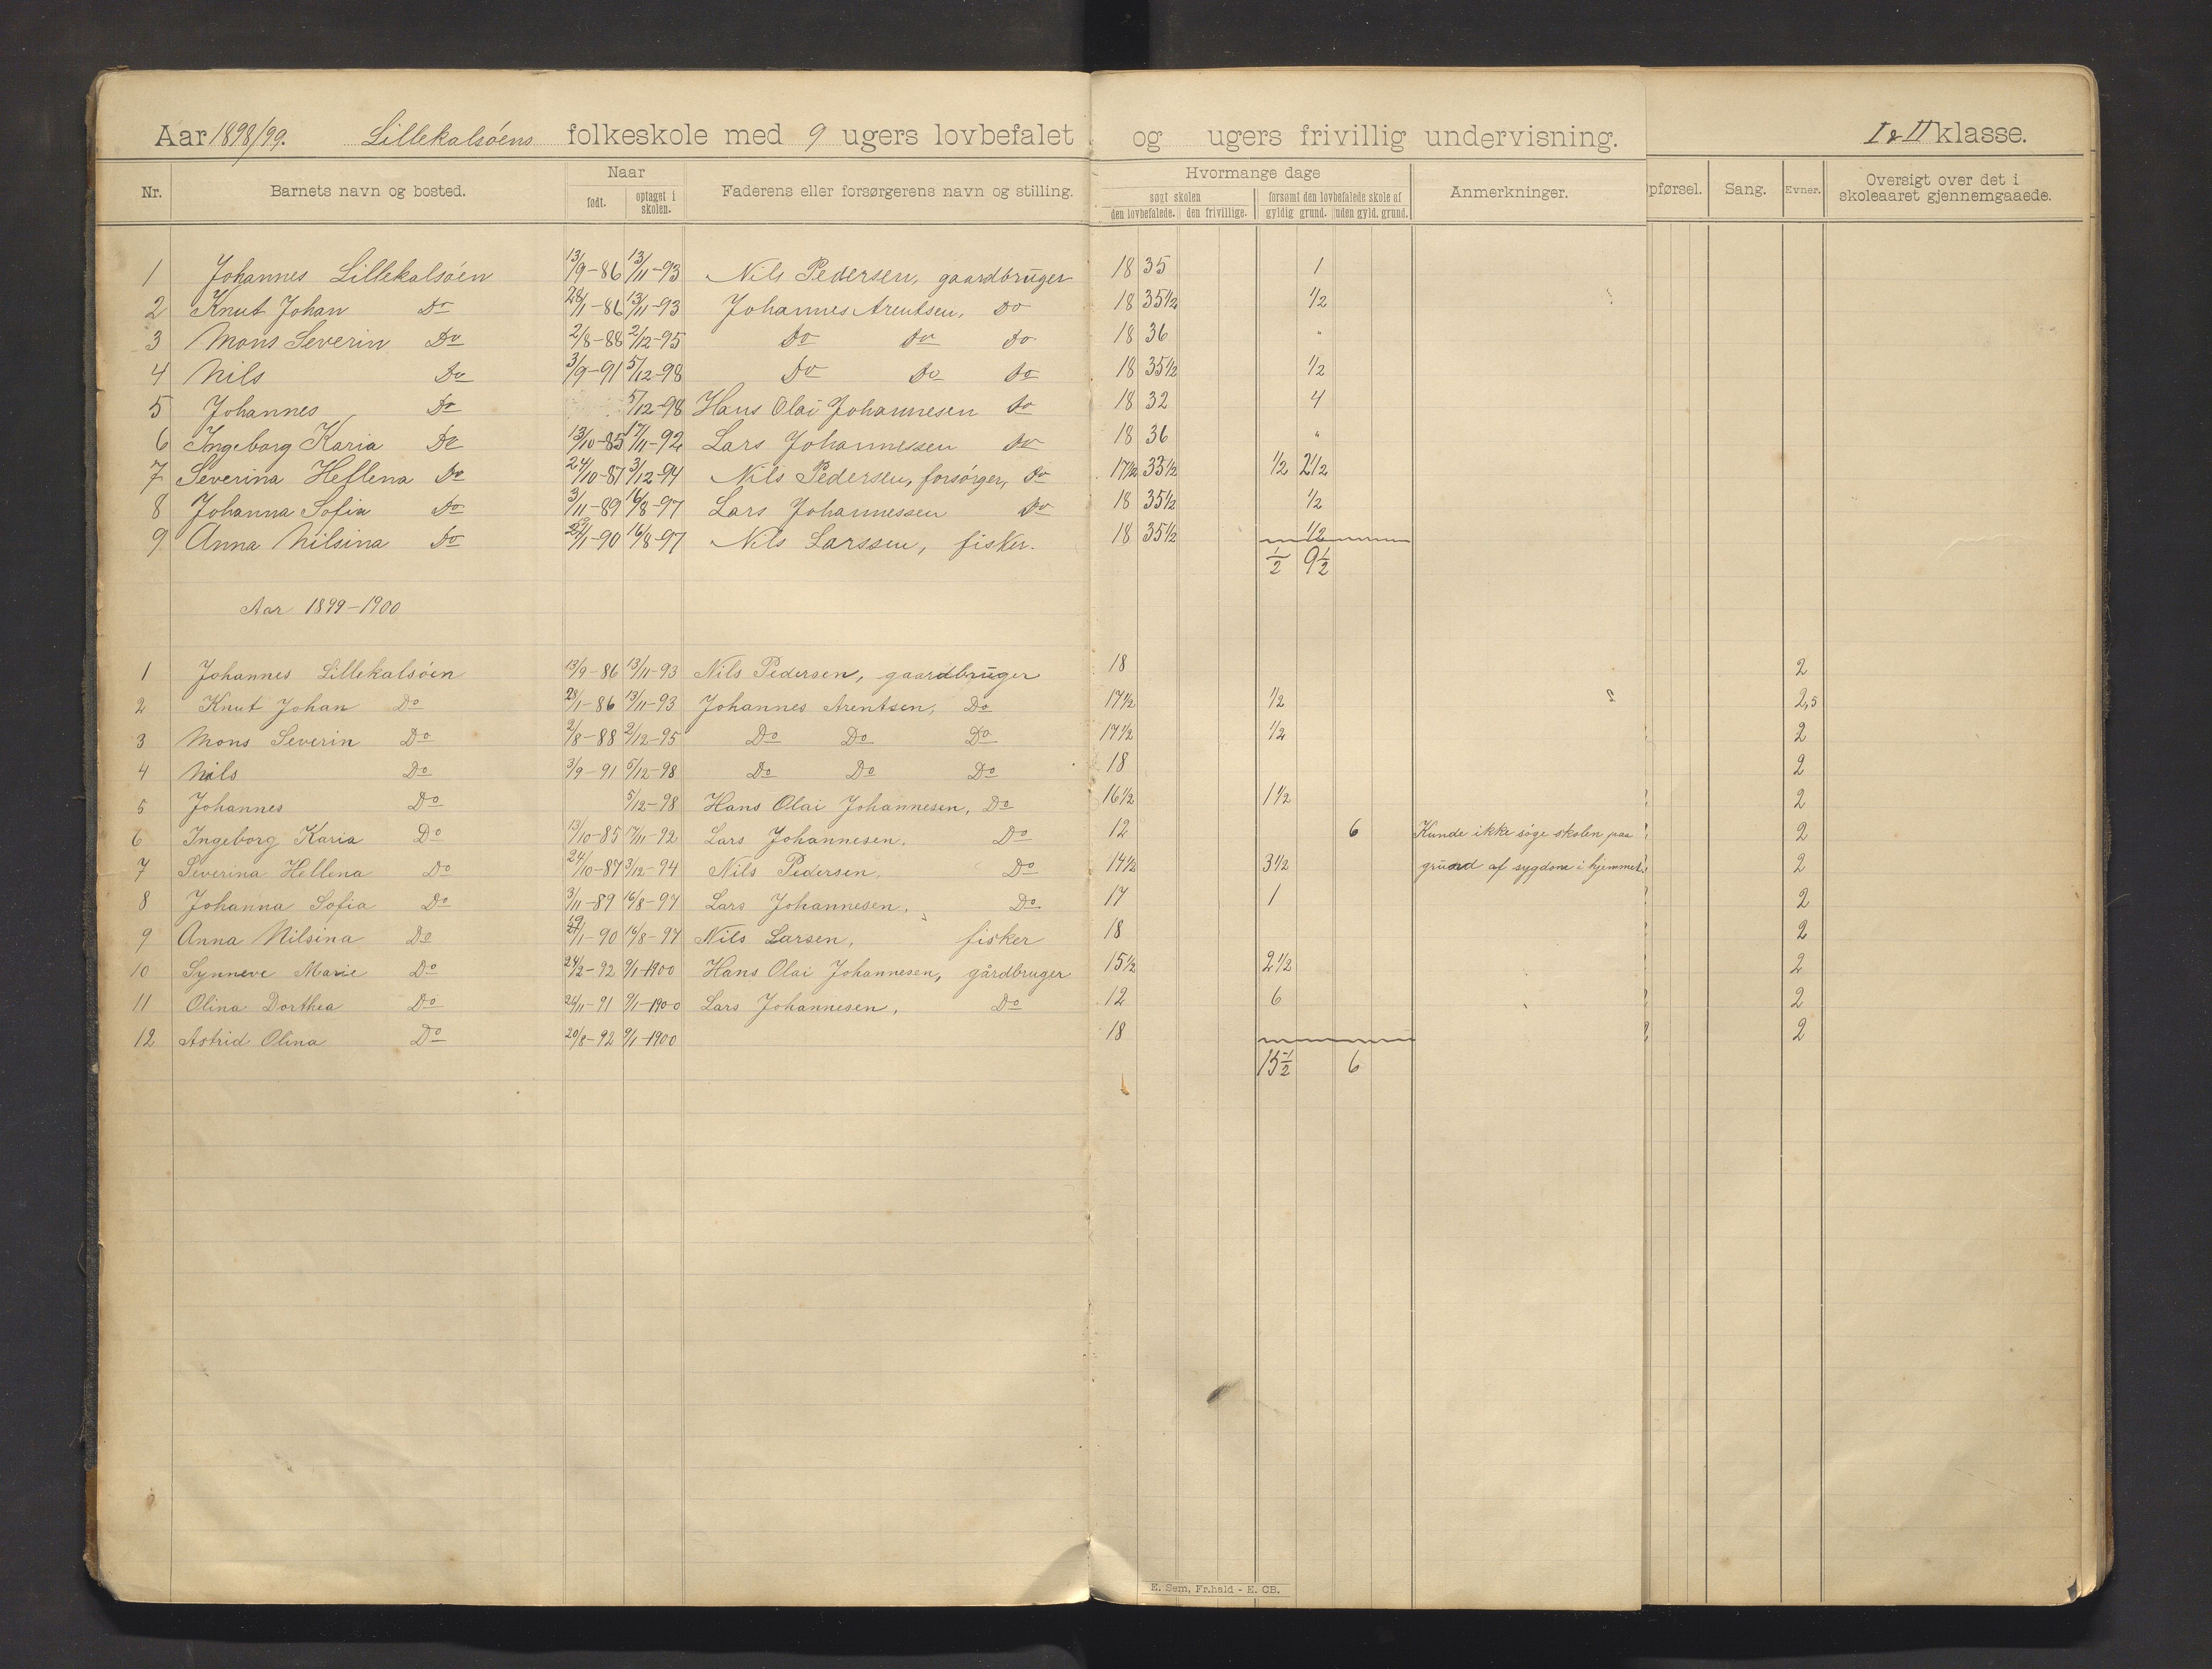 Aar 1898/99. Lillekalsöens folkeskole med 9 ugers lovbefalet og ugers frivillig undervisning. I & II klasse.
Nr. Barnets navn og bosted. Naar født. optaget i skolen. Faderens eller forsørgerens navn og stilling. Hvormange dage søgt skolen den lovbefalede. den frivillige. forsømt den lovbefalede skole af gyldig grund. uden gyld. grund. Anmerkninger. pførsel. Sang. Evner. Oversigt over det i skoleaaret gjennemgaaede.
1 Johannes Lillekalsöen 13/9-86 13/11-93 Nils Pedersen, gaardbruger 18 35 1
2 Knut Johan Do 28/1-86 13/11-93 Johannes Arentsen, Do 18 35½ ½
3 Mons Severin Do 2/8-88 2/12-95 Do Do Do 18 36 "
4 Nils Do 3/9-91 5/12-98 Do Do Do 18 35½ ½
5 Johannes Do 5/12-98 Hans Olai Johannesen Do 18 32 4
6 Ingeborg Karia Do 13/10-85 17/11-92 Lars Johannessen Do 18 36 "
7 Severina Hellena Do 24/10-87 3/12-94 Nils Pedersen, forsörger, Do 17½ 33½ ½ 2½
8 Johanna Sofia Do 3/11-89 16/8-97 Lars Johannessen Do 18 35½ ½
9 Anna Nilsina Do /1-90 16/8-97 Nils Larssen, fisker. 18 35½ ½
½ 9½
Aar 1899-1900
1 Johannes Lillekalsöen 13/9-86 13/11-93 Nils Pedersen, gaardbruger 18 2
2 Knut Johan Do 28/1-86 13/11-93 Johannes Arentsen, Do 17½ ½ 2,5
3 Mons Severin Do 2/8-88 2/12-95 Do Do Do 17½ ½ 2
4 Nils Do 3/9-91 5/12-98 Do Do Do 18 2
5 Johannes Do 5/12-98 Hans Olai Johannesen, Do 16½ 1½ 2
6 Ingeborg Karia Do 13/10-85 17/11-92 Lars Johannesen, Do 12 6 Kunde ikke søge skolen paa 2
7 Severina Hellena Do 24/10-87 3/12-94 Nils Pedersen, Do 14½ 3½ grund af sygdom i hjemmet 2
8 Johanna Sofia Do 3/11-89 16/8-97 Lars Johannesen, Do 17 1 2
9 Anna Nilsina Do /1-90 16/8-97 Nils Larsen, fisker 18 2
10 Synneve Marie Do 24/2-92 9/1-1900 Hans Olai Johannesen, gårdbruger 15½ 2½ 2
11 Olina Dorthea Do 26/11-91 9/1-1900 Lars Johannesen, Do 12 6 2
12 Astrid Olina Do 20/8-92 9/1-1900 18 2
15½ 6
E. Sem, Fr.hald - E. CB.